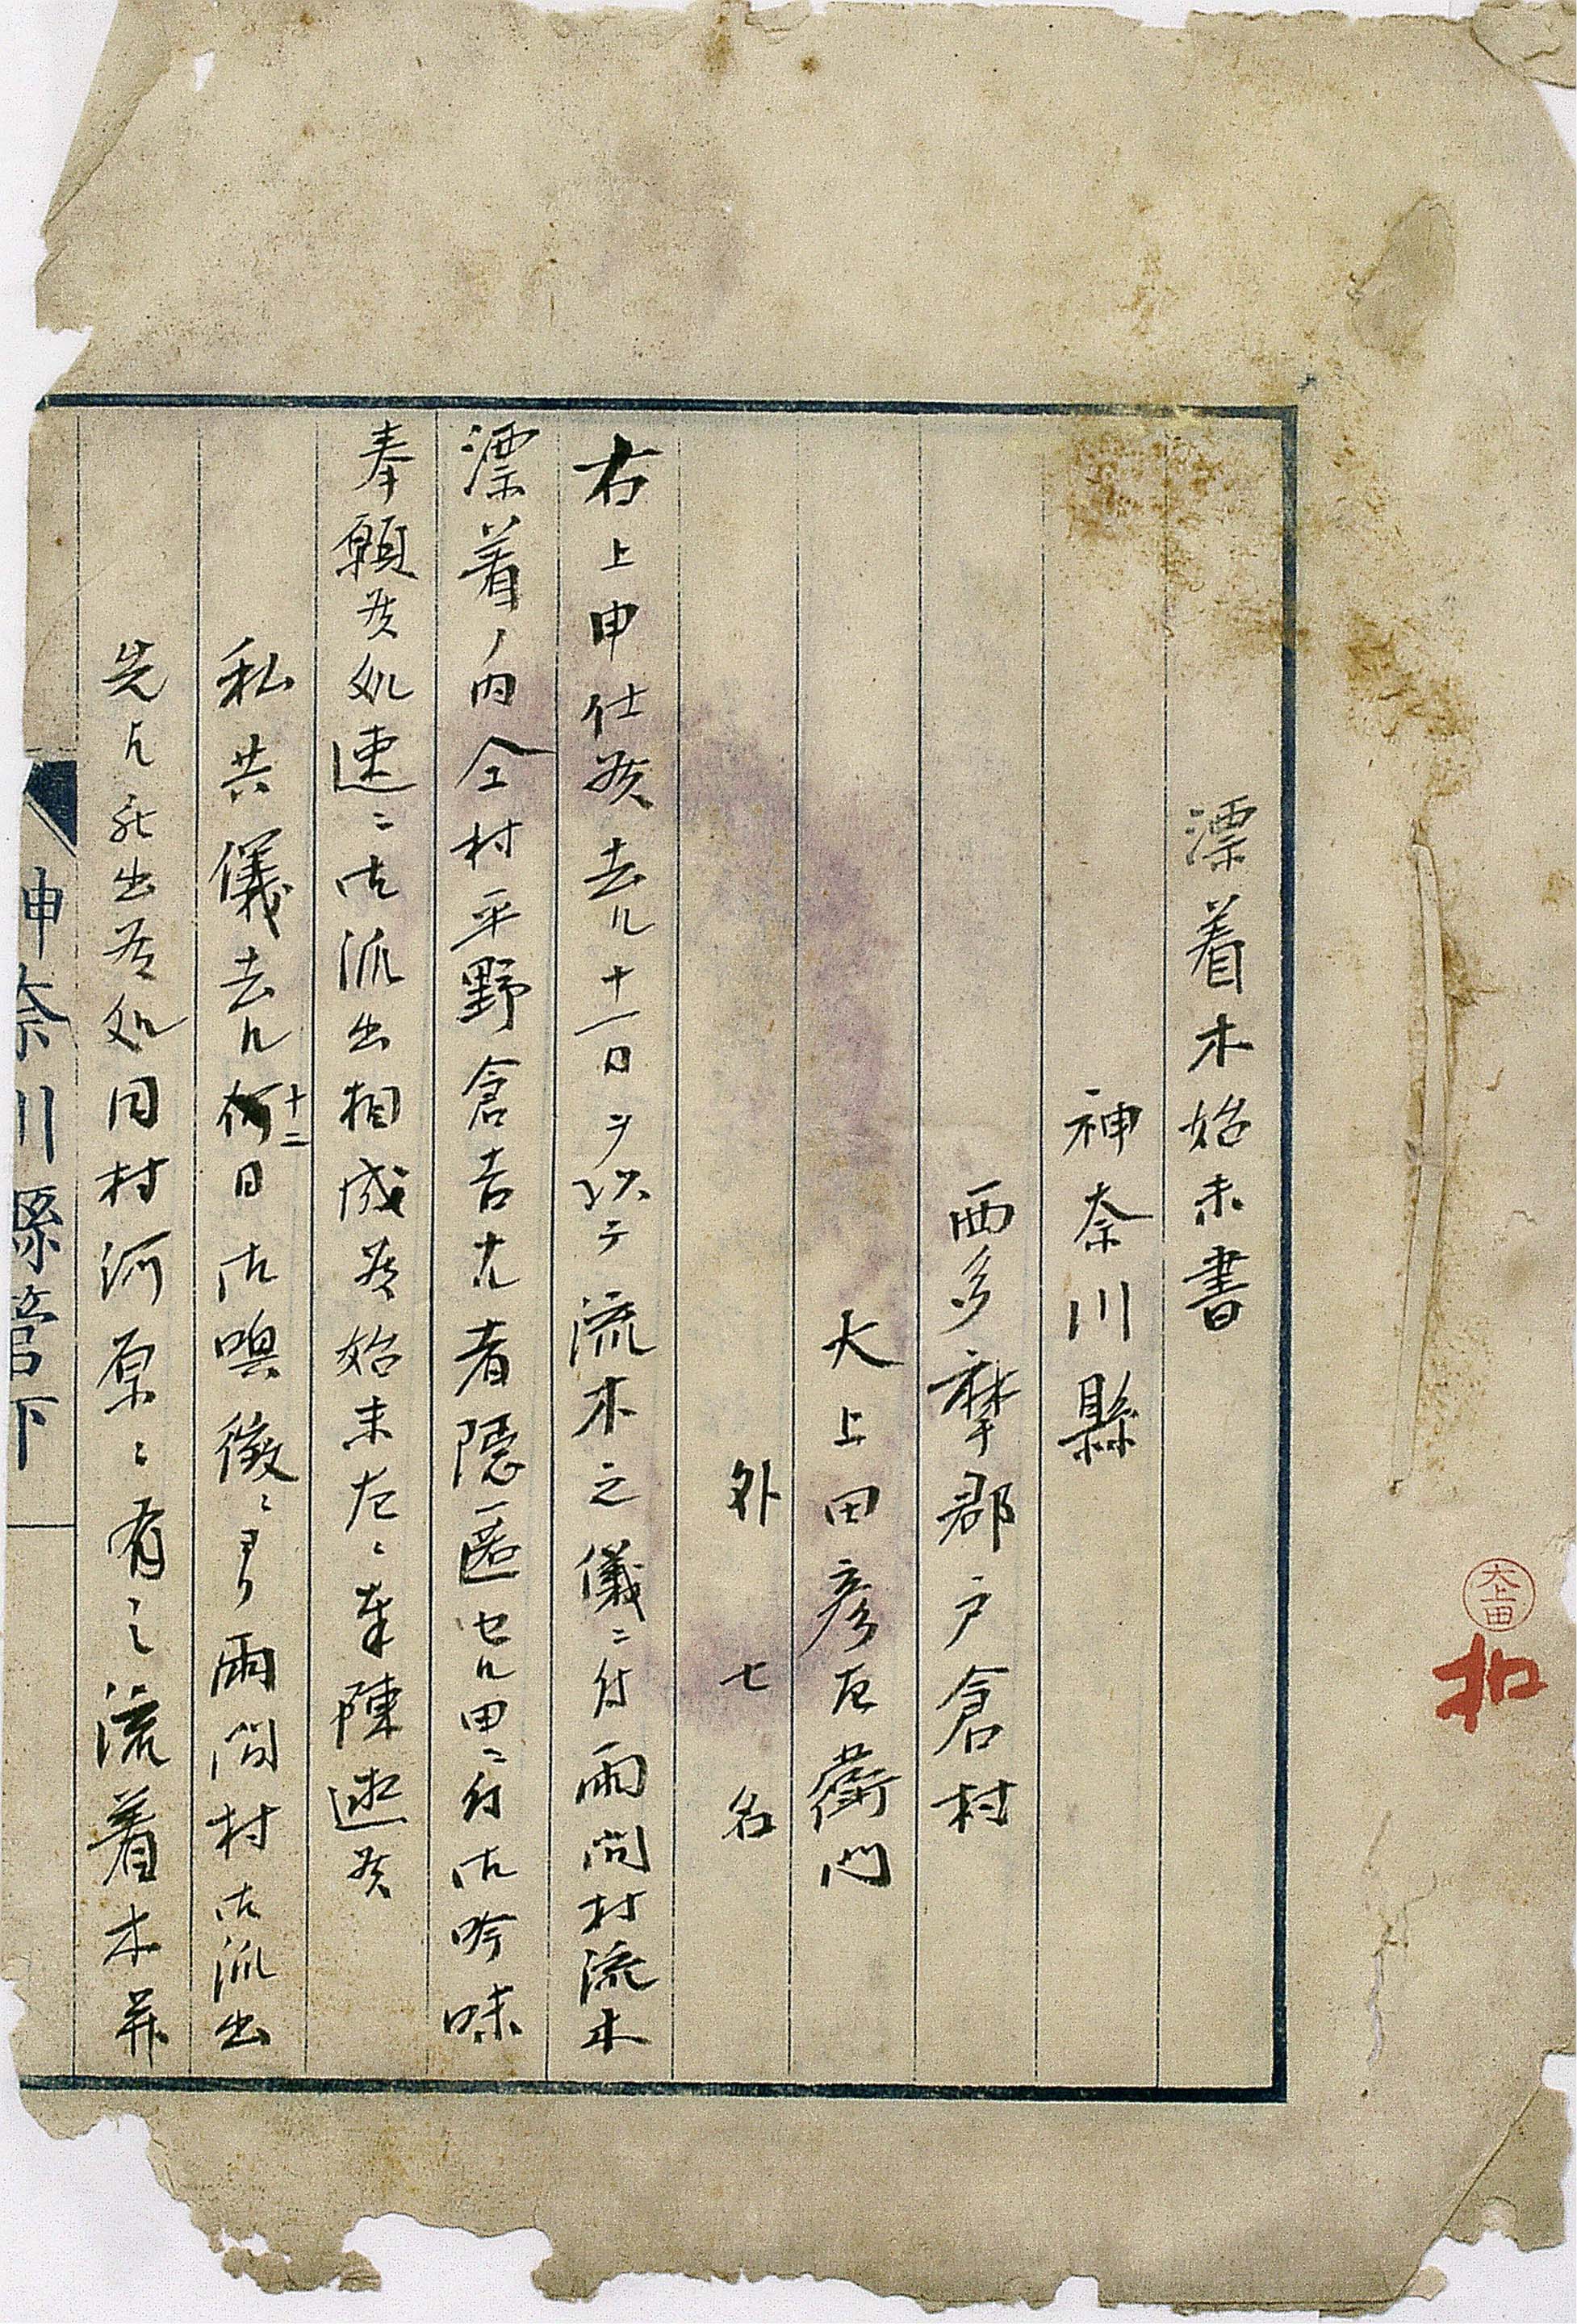 大上田
扣
漂着木始末書
神奈川縣
西多摩郡戸倉村
大上田彦左衛門
外七名
右上申仕候去ル十一日ヲ以テ流木之儀ニ付雨間村流木
漂着ノ内仝村平野倉吉ナル者隠匿セル由ニ付御吟味
奉願候処速ニ御派出相成候始末左ニ奉陳述候
私共儀去ル十二日御喚徴ニヨリ雨間村御派出
先ヘ罷出候処同村河原ニ有之流着木并
神奈川縣管下